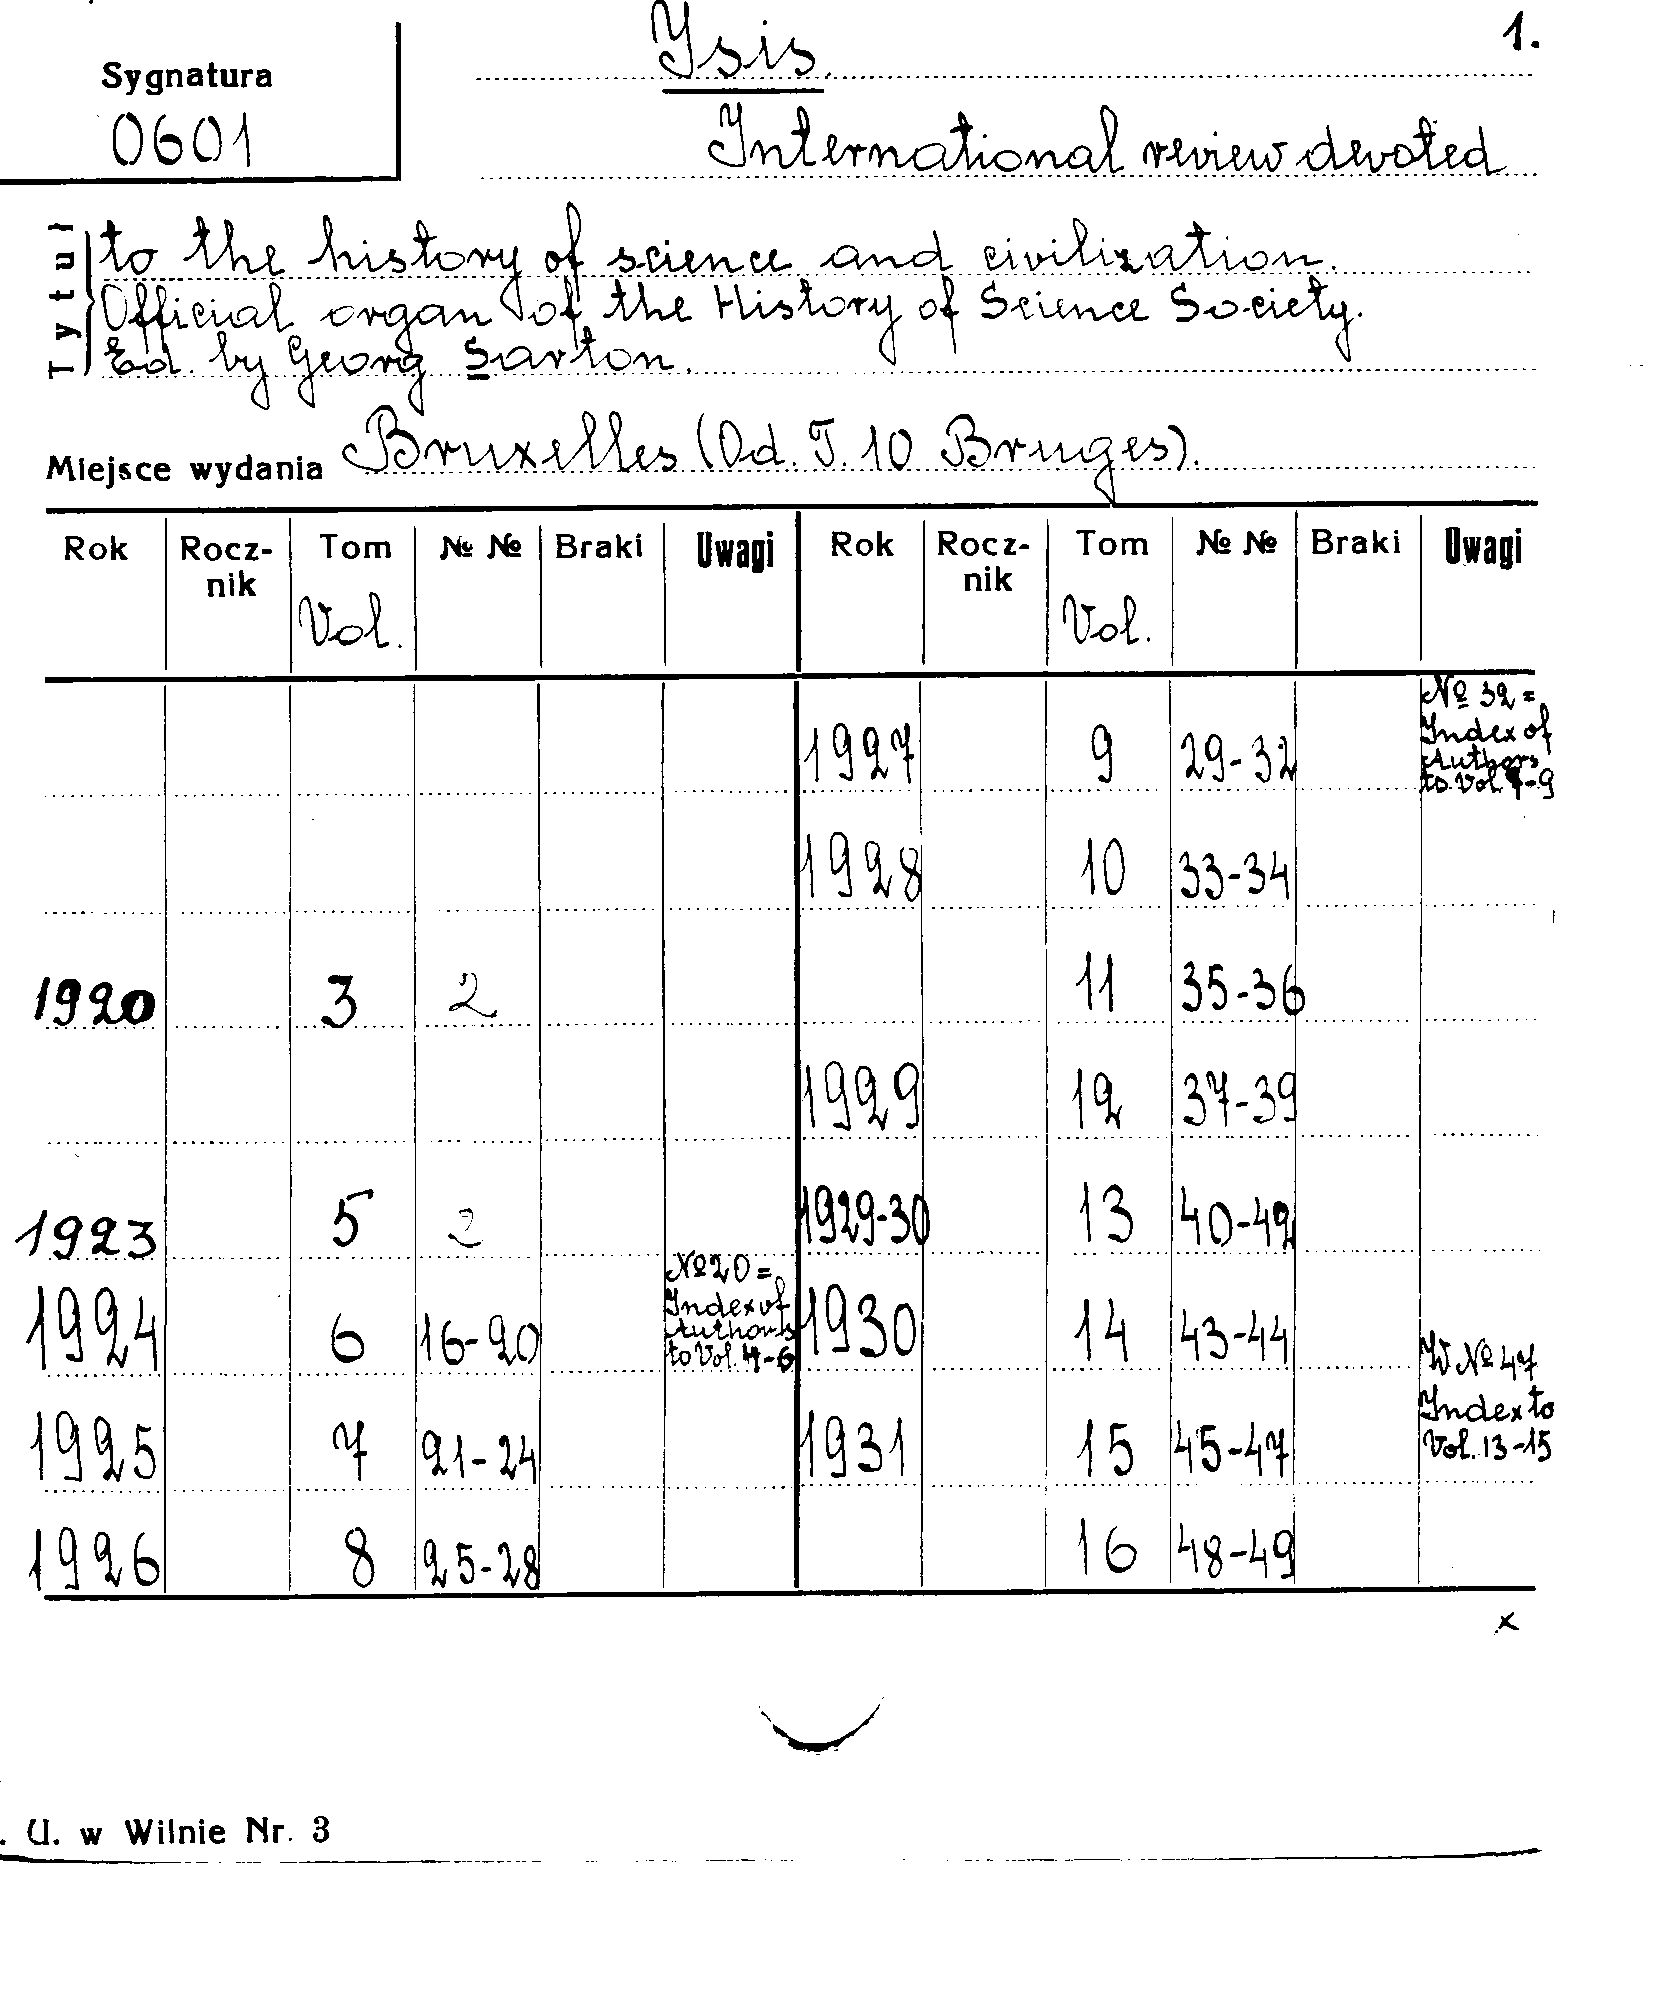 Ysis.
1.
Sygnatura
0601
International review devoted
Tytuł
to the history of science and civilization.
Official organ of the History of Science Society.
Ed. by Georg Sarton.
Miejsce wydania Bruxelles (Od. T. 10 Bruges).
Rok Rocz- Tom № № Braki Uwagi Rok Rocz- Tom № № Braki Uwagi
nik nik
Vol. Vol.
1920 3 2
1923 5 2
1924 6 16-20
№ 20 =
Index of
Authors
to Vol. 4-6
1925 7 21-24
1926 8 25-28
1927 9 29-32
№ 32 =
Index of
Authors
to Vol. -9
1928 10 33-34
11 35-36
1929 12 37-39
1929-30 13 40-42
1930 14 43-44
1931 15 45-47
W № 47
Index to
Vol. 13-15
16 48-49
x
. U. w Wilnie Nr. 3